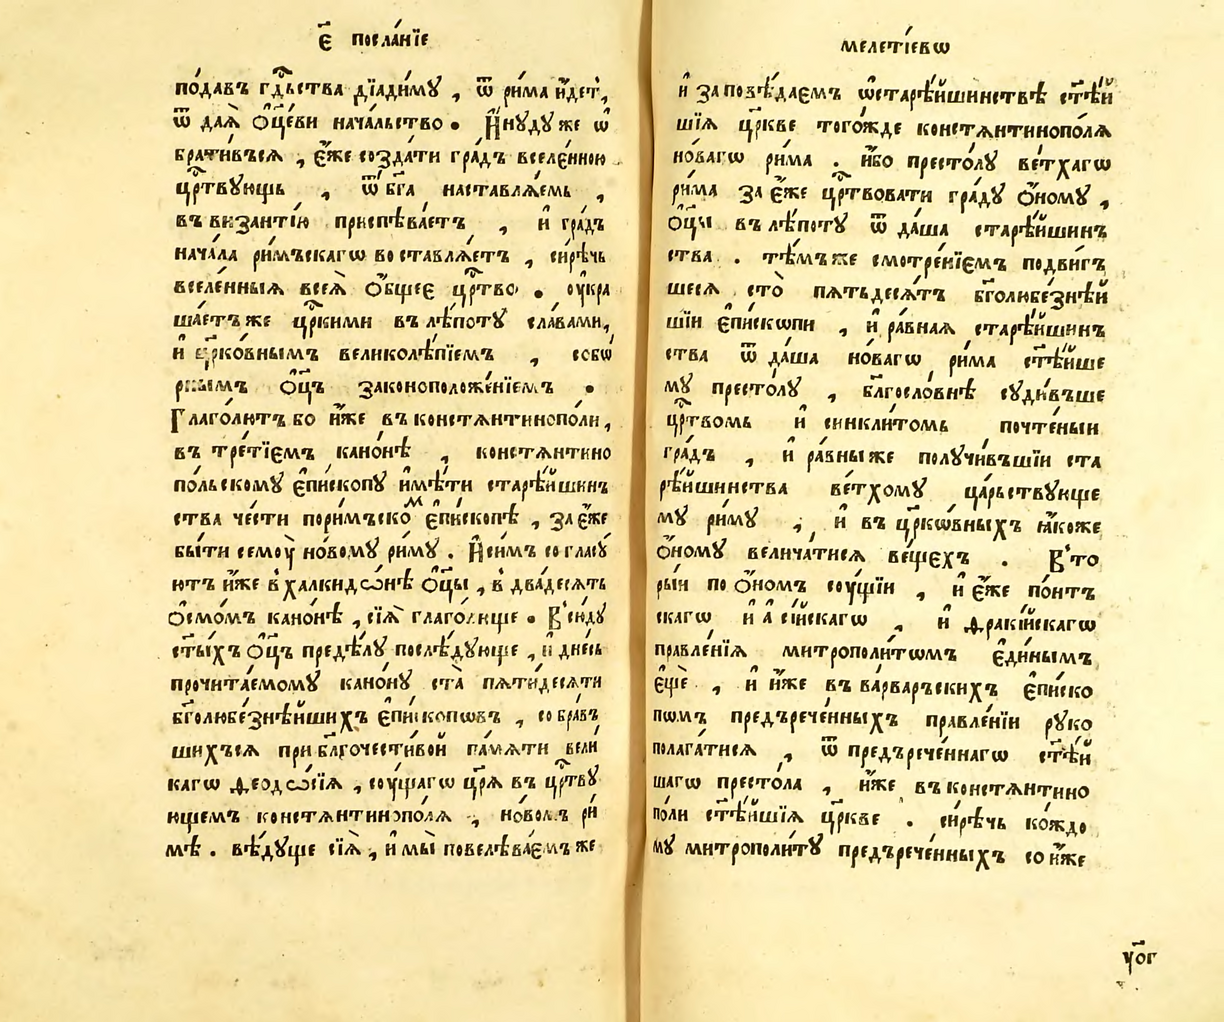 є҃ посла́нїе
пода́въ гдⷭ҇ьства дїади́мꙋ , ѿ ри́ма и҆́дет̾,
ѿ даѧ̀ ѻ҆ц҃еви нача́льство . И҆нꙋ́дꙋ же ѡ҆
брати́въсѧ , є҆́же созда́ти гра́дъ вселе́нною
црⷭ҇твꙋющь , ѿ бг҃а наставлѧ́емь ,
въ византі́ю приспѣва́етъ , и҆ гра́дъ
нача́ла ри́мъскагѡ воставлѧ́етъ , си́рѣчь
вселе́нныѧ всеѧ̀ ѻ҆́бщее црⷭ҇тво . оу҆кра
ша́етъ же црⷭ҇кими въ лѣ́потꙋ сла́вами,
и҆ цр҃ко́внымъ великолѣ́пїемъ , собѡ́
рнымъ ѻ҆ц҃ъ законоположе́нїемъ .
Глаго́лютъ бо и҆̀же въ констѧнтинопо́ли,
въ тре́тїемъ кано́нѣ , констѧнтино
по́льскомꙋ є҆пи́скопꙋ и҆мѣ́ти старѣ́йшинъ
ства че́сти пори́мъскоⷨ є҆пи́скопѣ , за є҆́же
бы́ти семоу̀ но́вомꙋ ри́мꙋ . И҆ си́мъ согласꙋ́
ютъ и҆̀же в̾ халкидѡ́нѣ ѻ҆ц҃ы , в̾ два́десѧть
ѻ҆смо́мъ кано́нѣ , сїѧ̀ глаго́люще . В̾сю́дꙋ
ст҃ы́хъ ѻ҆ц҃ъ предѣ́лꙋ послѣ́дꙋюще , и҆ дне́сь
прочита́емомꙋ кано́нꙋ ста̀ пѧти́десѧти
бг҃олюбе́знѣйшихъ є҆пи́скопѡвъ , собра́въ
шихъсѧ при бл҃гочести́вой па́мѧти вели́
кагѡ ѳеодѡ́сїѧ , соу́щагѡ цр҃ѧ̀ въ црⷭ҇твꙋ
ющемъ констѧнтинопо́лѧ , но́вомъ ри́
мѣ . вѣ́дꙋще сїѧ̀ , и҆ мы̀ повелѣва́емъ же
мелеті́евѡ
и҆ заповѣ́даемъ ѡ҆старѣ́йшинствѣ ст҃ѣ́й
шїѧ цр҃кве тогѡ́жде констѧнтинопо́лѧ
но́вагѡ ри́ма . и҆́бо престо́лꙋ ве́тхагѡ
ри́ма за є҆́же црⷭ҇твовати гра́дꙋ ѻ҆́номꙋ ,
ѻ҆ц҃ы въ лѣ́потꙋ ѿ да́ша старѣ́йшинъ
ства . тѣ́мъже смотре́нїемъ подви́гъ
шесѧ сто̀ пѧтьдесѧ́тъ бг҃олюбе́знѣй
шїи є҆пи́скопи , и҆ ра́внаѧ старѣ́йшинъ
ства ѿ да́ша но́вагѡ ри́ма ст҃ѣ́йше
мꙋ престо́лꙋ , бл҃госло́внѣ сꙋди́въше
црⷭ҇твомь и҆ синкли́томь почте́ныи
гра́дъ , и҆ ра́вны же полꙋчи́въшїи ста
рѣ́йшинства ве́тхомꙋ ца́рьствꙋюще
мꙋ ри́мꙋ , и҆ въ цр҃кѡ́вныхъ ꙗ҆́коже
ѻ҆́номꙋ велича́тисѧ ве́щехъ . В̾то
ры́и по ѻ҆́номъ соу́щїи , и҆ є҆́же по́нтъ
скагѡ и҆ а҆сі́йскагѡ , и҆ ѳраки́йскагѡ
правле́нїѧ митрополи́тѡмъ є҆ди́нымъ
є҆щѐ , и҆ и҆̀же въ ва́рваръскихъ є҆пи́ско
пѡмъ предърече́нныхъ правле́нїи рꙋко
полага́тисѧ , ѿ предърече́ннагѡ ст҃ѣ́й
шагѡ престо́ла , и҆̀же въ констѧнтино
по́ли ст҃ѣ́йшїѧ цр҃кве . си́рѣчь ко́ждо
мꙋ митрополи́тꙋ предърече́нныхъ со и҆̀же
уо҃г